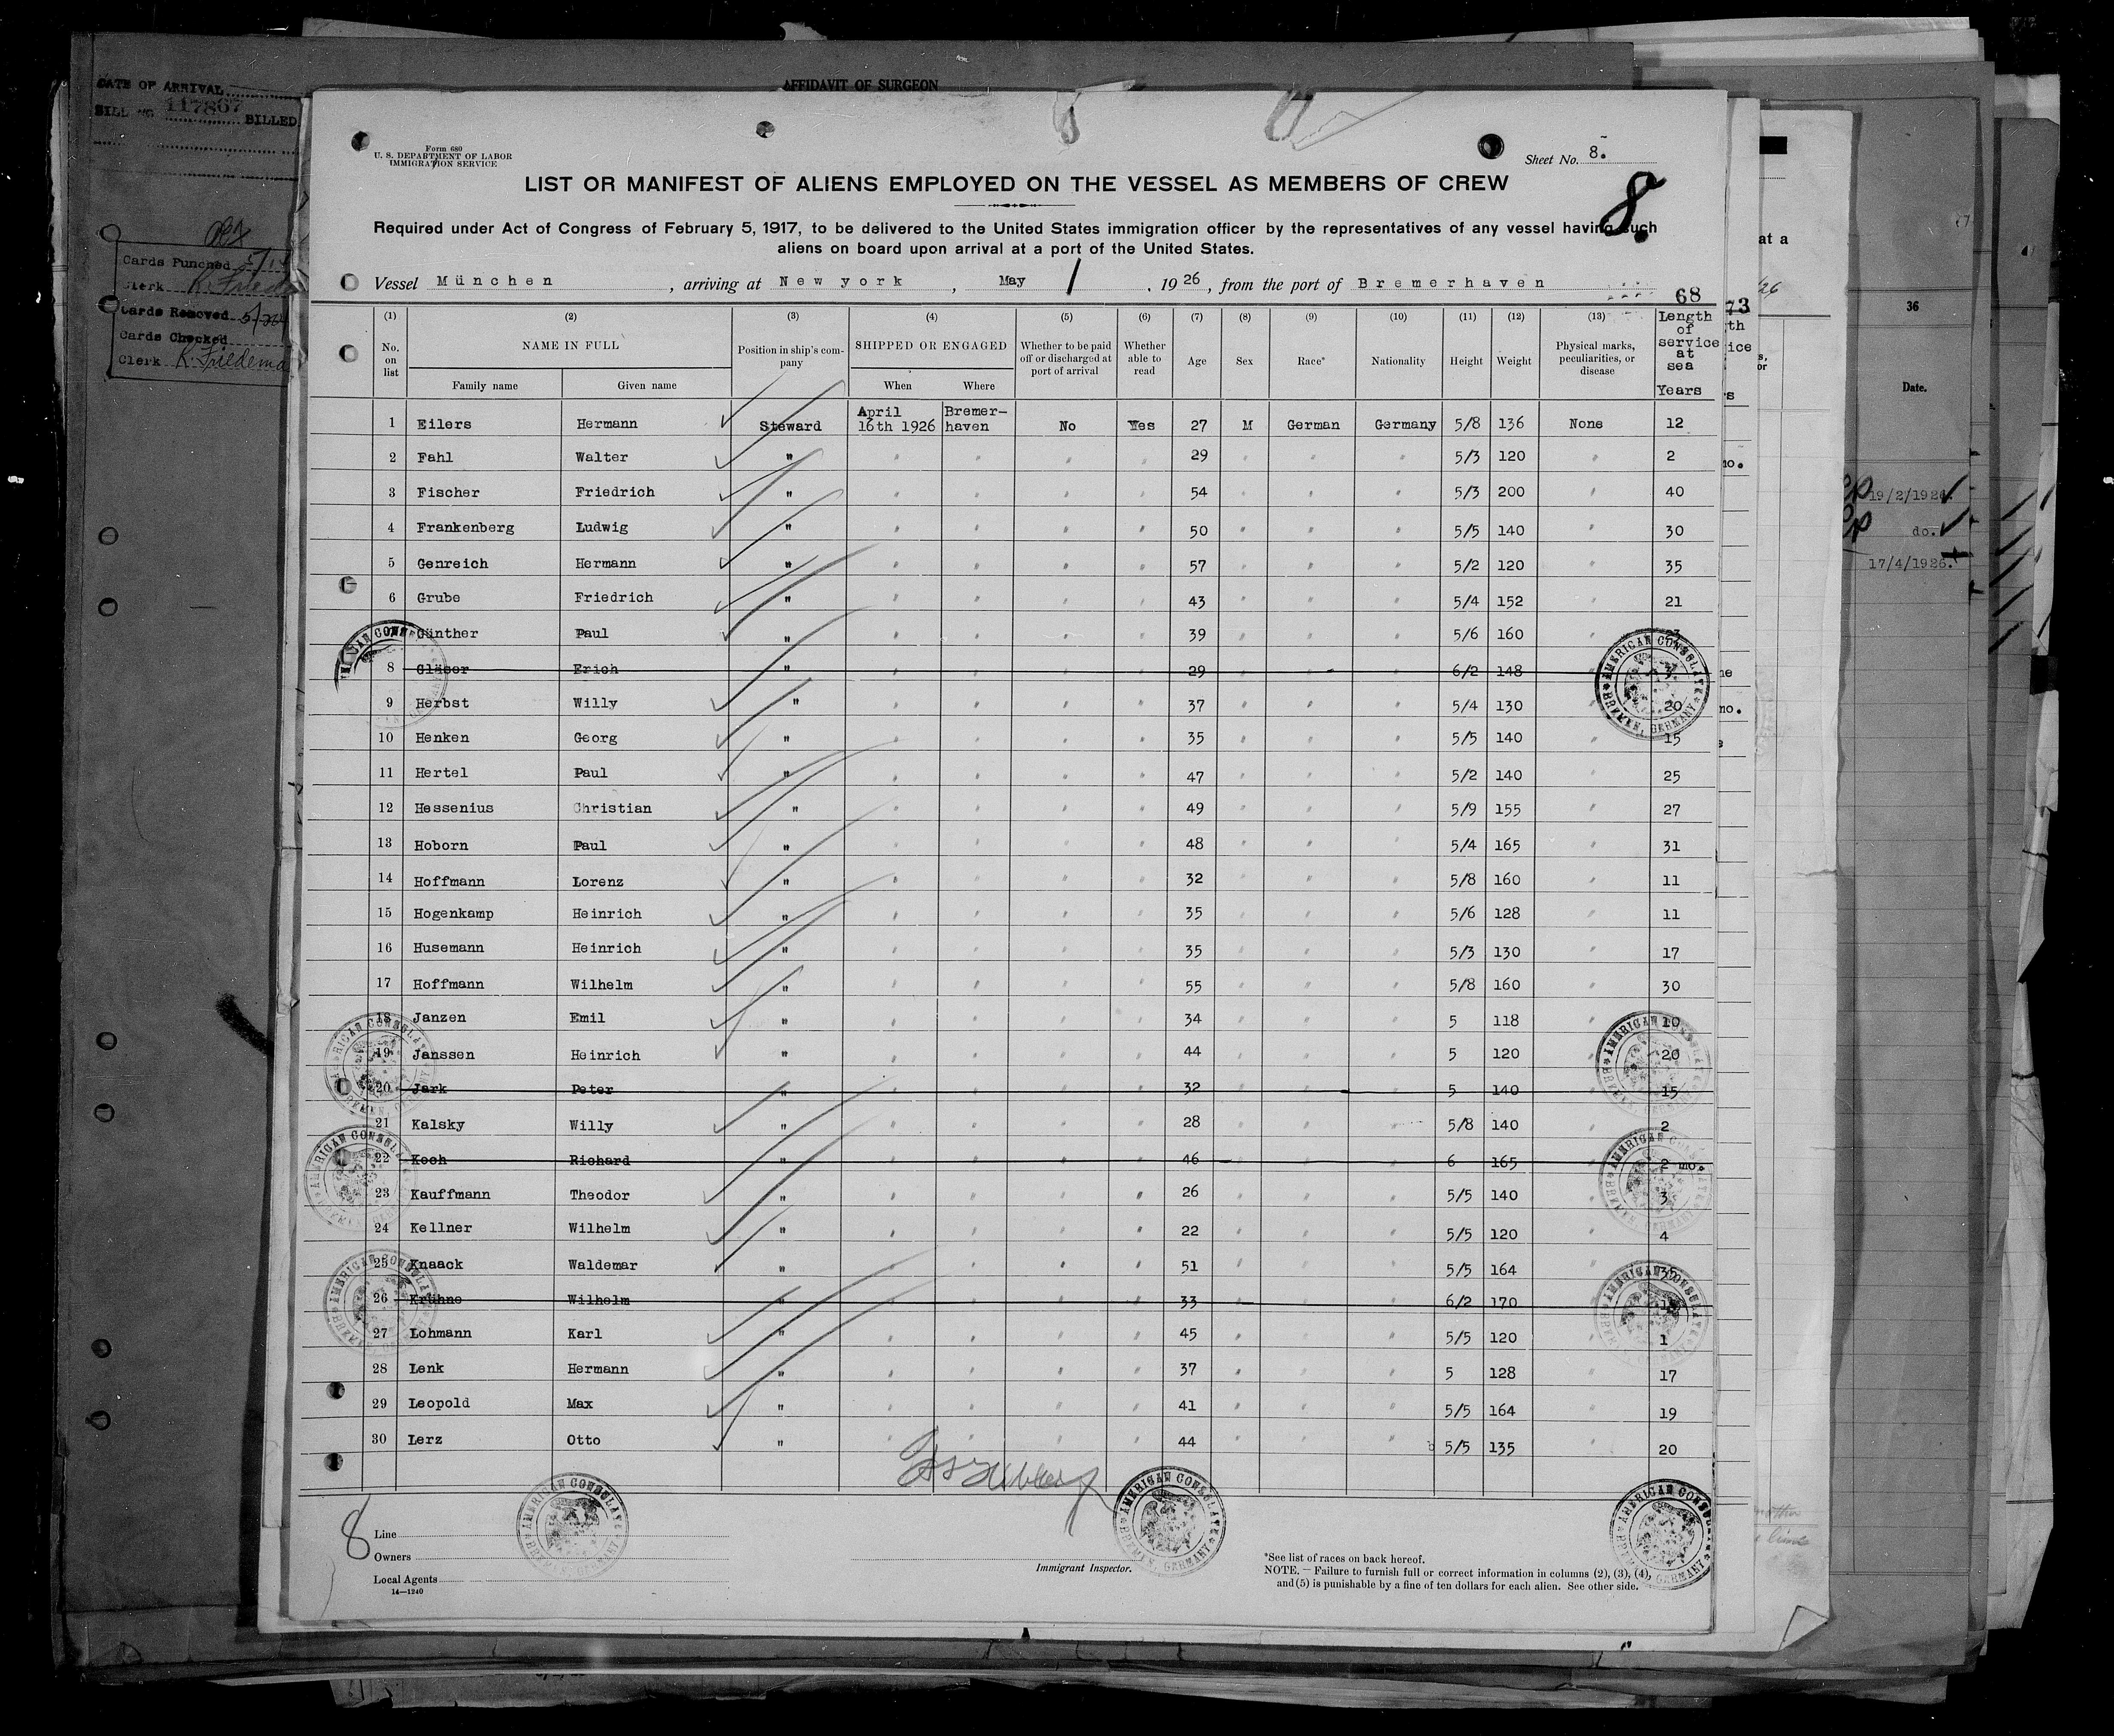 DATE OF ARRIVAL
BILL NO. 117867 BILLED
Cards Punched 5/14
Clerk
Cards Removed
Cards Checked
Clerk K. Friedema
AFFIDAVIT OF SURGEON
Form 680
U. S. DEPARTMENT OF LABOR
IMMIGRATION SERVICE
Sheet No. 8.
8.
LIST OR MANIFEST OF ALIENS EMPLOYED ON THE VESSEL AS MEMBERS OF CREW
Required under Act of Congress of February 5, 1917, to be delivered to the United States immigration officer by the representatives of any vessel having such
aliens on board upon arrival at a port of the United States.
Vessel München, arriving at New york, May 1, 1926, from the port of Bremerhaven
68
(1) (2) (3) (4) (5) (6) (7) (8) (9) (10) (11) (12) (13)
No. on list NAME IN FULL Position in ship's company SHIPPED OR ENGAGED Whether to be paid off or discharged at port of arrival Whether able to read Age Sex Race* Nationality Height Weight Physical marks, peculiarities, or disease Length of service at sea Years
Family name Given name When Where
1 Eilers Hermann Steward April 16th 1926 Bremerhaven No Yes 27 M German Germany 5/8 136 None 12
2 Fahl Walter " " " " " 29 " " " 5/3 120 " 2
3 Fischer Friedrich " " " " " 54 " " " 5/3 200 " 40
4 Frankenberg Ludwig " " " " " 50 " " " 5/5 140 " 30
5 Genreich Hermann " " " " " 57 " " " 5/2 120 " 35
6 Grube Friedrich " " " " " 43 " " " 5/4 152 " 21
7 Günther Paul " " " " " 39 " " " 5/6 160 "
8 Gläser Erich " " " " " 29 " " " 6/2 148 " 3
9 Herbst Willy " " " " " 37 " " " 5/4 130 " 20
10 Henken Georg " " " " " 35 " " " 5/5 140 " 15
11 Hertel Paul " " " " " 47 " " " 5/2 140 " 25
12 Hessenius Christian " " " " " 49 " " " 5/9 155 " 27
13 Hoborn Paul " " " " " 48 " " " 5/4 165 " 31
14 Hoffmann Lorenz " " " " " 32 " " " 5/8 160 " 11
15 Hogenkamp Heinrich " " " " " 35 " " " 5/6 128 " 11
16 Husemann Heinrich " " " " " 35 " " " 5/3 130 " 17
17 Hoffmann Wilhelm " " " " " 55 " " " 5/8 160 " 30
18 Janzen Emil " " " " " 34 " " " 5 118 " 10
19 Janssen Heinrich " " " " " 44 " " " 5 120 " 20
20 Jark Peter " " " " " 32 " " " 5 140 " 15
21 Kalsky Willy " " " " " 28 " " " 5/8 140 " 2
22 Koch Richard " " " " " 46 " " " 6 165 " 2 mo.
23 Kauffmann Theodor " " " " " 26 " " " 5/5 140 " 3
24 Kellner Wilhelm " " " " " 22 " " " 5/5 120 " 4
25 Knaack Waldemar " " " " " 51 " " " 5/5 164 " 35
26 Krühne Wilhelm " " " " " 33 " " " 6/2 170 "
27 Lohmann Karl " " " " " 45 " " " 5/5 120 " 1
28 Lenk Hermann " " " " " 37 " " " 5 128 " 17
29 Leopold Max " " " " " 41 " " " 5/5 164 " 19
30 Lerz Otto " " " " " 44 " " " 5/5 135 " 20
AMERICAN CONSULATE BREMEN, GERMANY
8
Line
Owners
Local Agents
14—1240
Immigrant Inspector.
*See list of races on back hereof.
NOTE. — Failure to furnish full or correct information in columns (2), (3), (4),
and (5) is punishable by a fine of ten dollars for each alien. See other side.
73
at a
36
Date.
19/2/1926.
do.
17/4/1926.